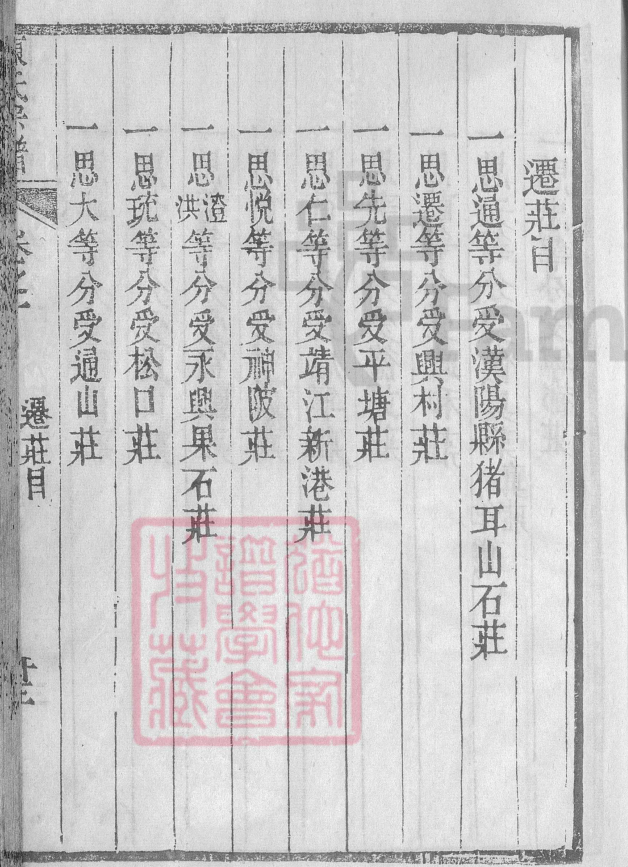 遷莊目
一思通等分受漢陽縣猪耳山石莊
一思遷等分受興村莊
一思先等分受平塘莊
一思仁等分受靖江新港莊
一思悦等分受神陂莊
一思澄洪等分受永興果石莊
一思珫等分受松口莊
一思大等分受通山莊
遷莊目
猶他家
譜學會
收藏